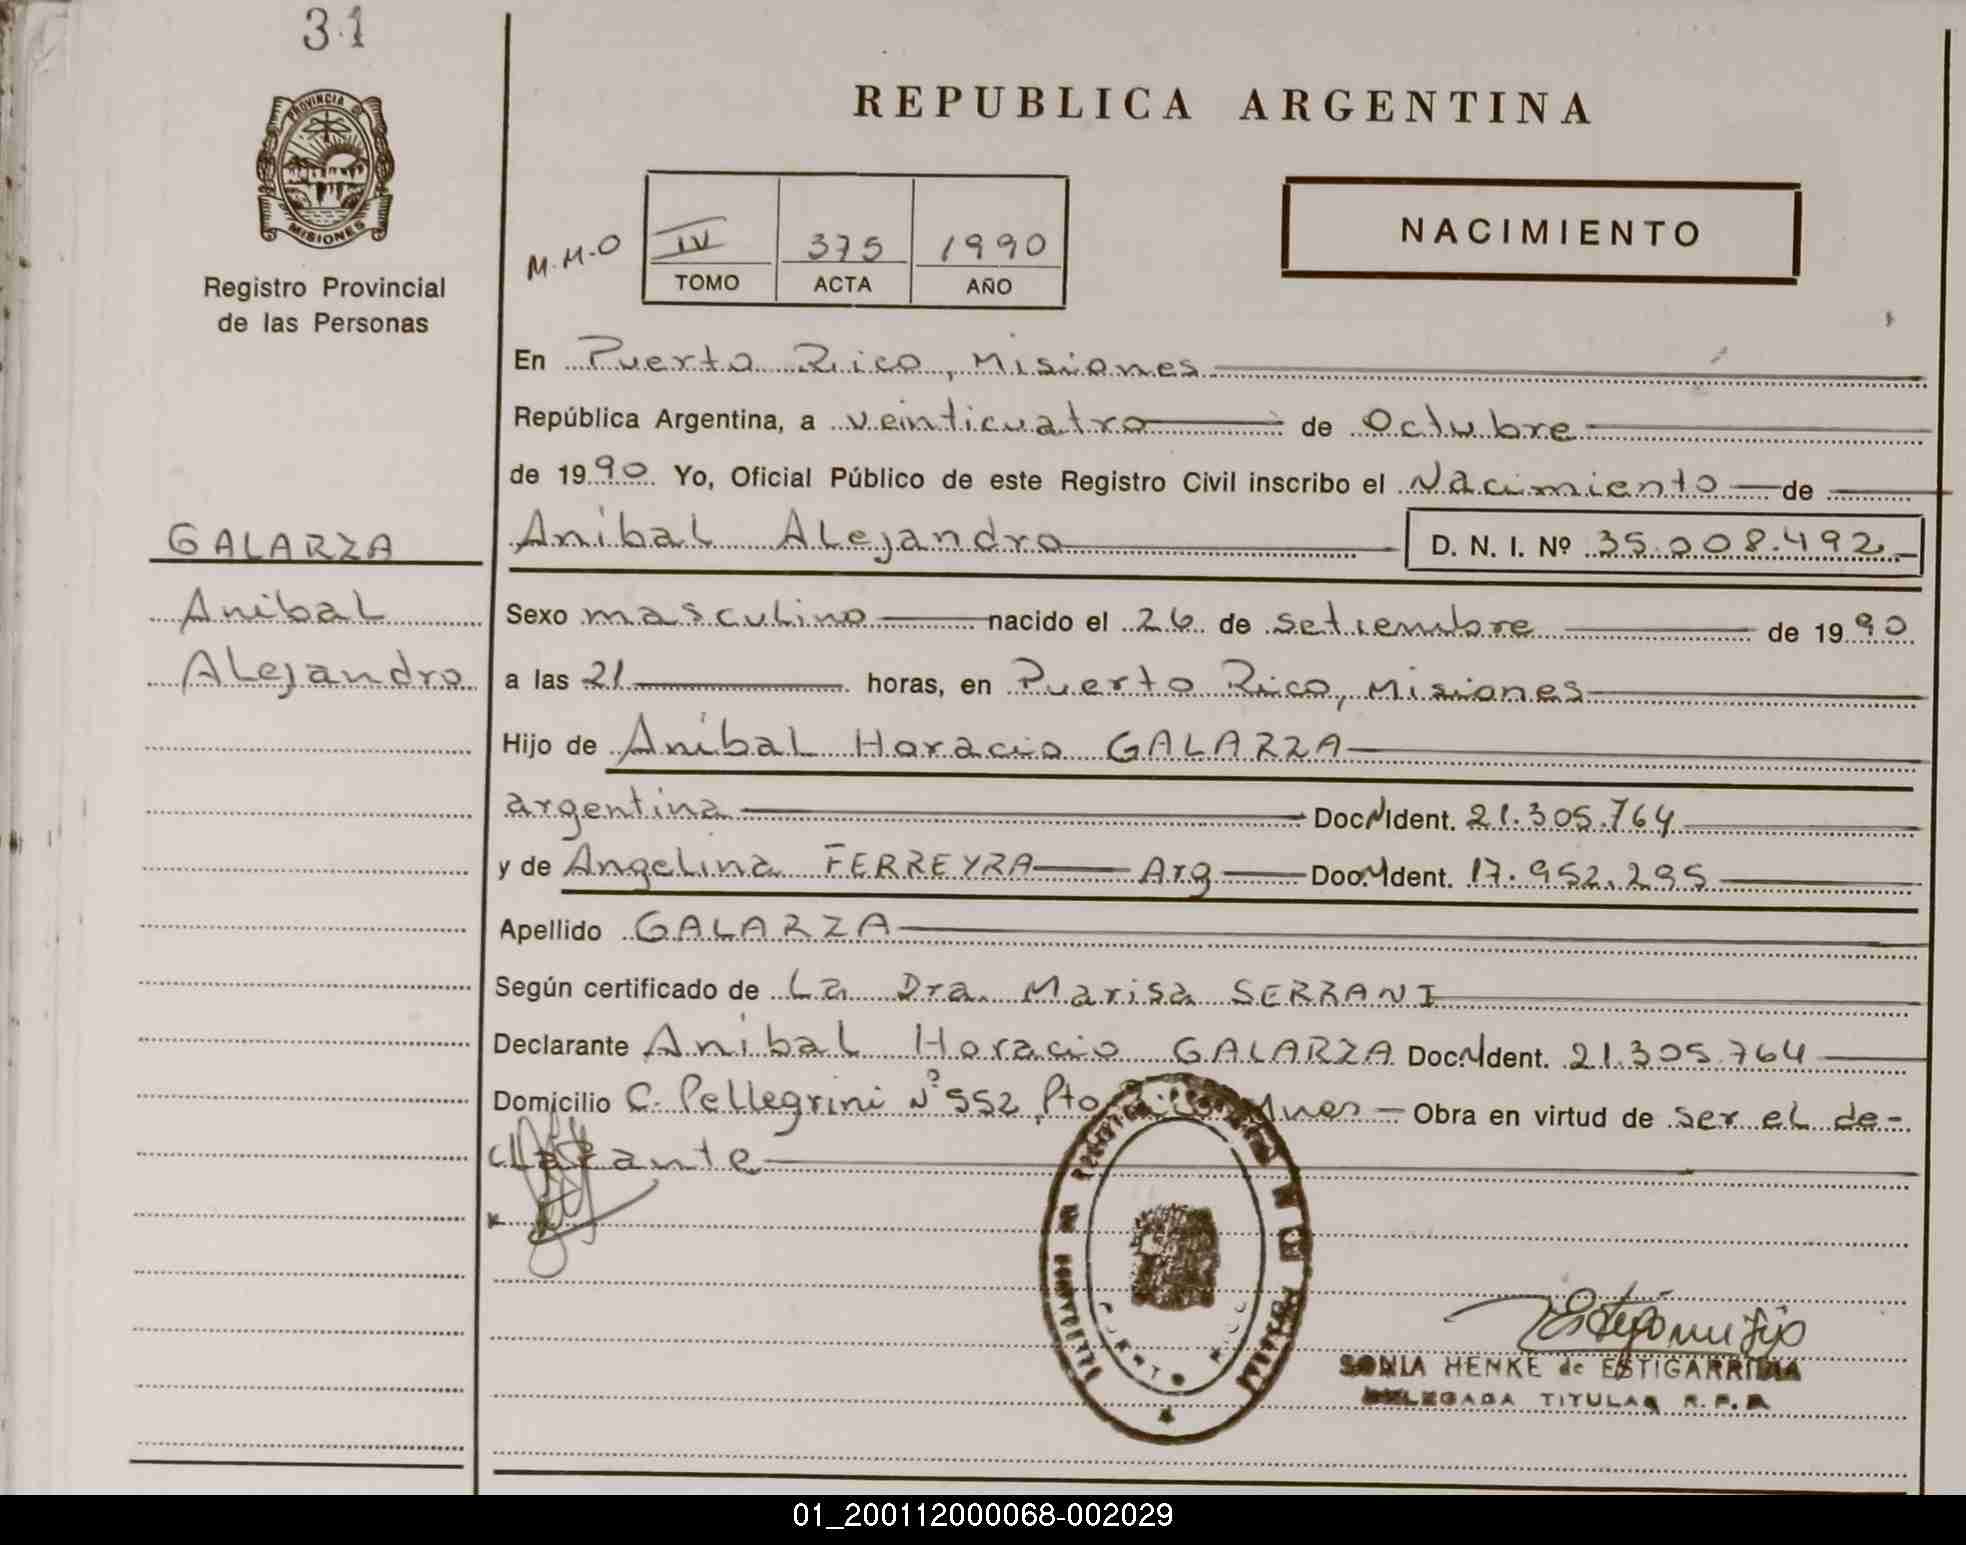 31
PROVINCIA DE
MISIONES
Registro Provincial
de las Personas
REPUBLICA ARGENTINA
M.M.O
IV 375 1990
TOMO ACTA AÑO
NACIMIENTO
En Puerto Rico, Misiones
República Argentina, a veinticuatro de Octubre
de 1990 Yo, Oficial Público de este Registro Civil inscribo el Nacimiento de
GALARZA
Aníbal Alejandro D. N. I. Nº 35.008.492
Anibal
Alejandro
Sexo masculino nacido el 26 de setiembre de 1990
a las 21 horas, en Puerto Rico, Misiones
Hijo de Aníbal Horacio GALARZA
argentina Doc.N.Ident. 21.305.764
y de Angelina FERREYRA Arg Doc.N.Ident. 17.952.295
Apellido GALARZA
Según certificado de La Dra. Marisa SERRANI
Declarante Aníbal Horacio GALARZA Doc.N.Ident. 21.305.764
Domicilio C. Pellegrini Nº 552, Pto Mnes Obra en virtud de ser el de-
clarante
PUERTO RICO
SONIA HENKE de ESTIGARRIBIA
DELEGADA TITULAR R.P.P.
01_200112000068-002029